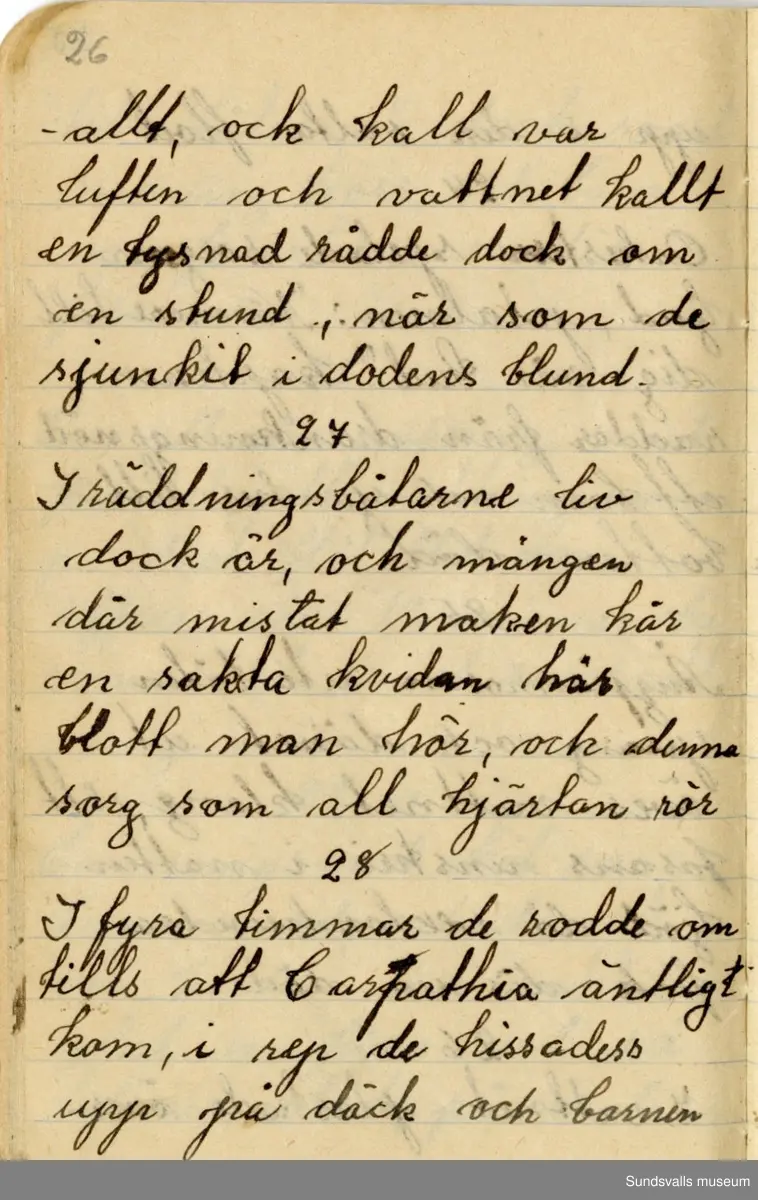 26
- allt, ock kall var
luften och vattnet kallt
en tysnad rådde dock om
en stund, när som de
sjunkit i dodens blund.
27
I räddningsbåtarne liv
dock är, och mången
där mistat maken kär
en sakta kvidan här
blott man hör, och denna
sorg som all hjärtan rör
28
I fyra timmar de rodde om
tills att Carpathia äntligt
kom, i rep de hissadess
upp på däck och barnen
Sundsvalls museum